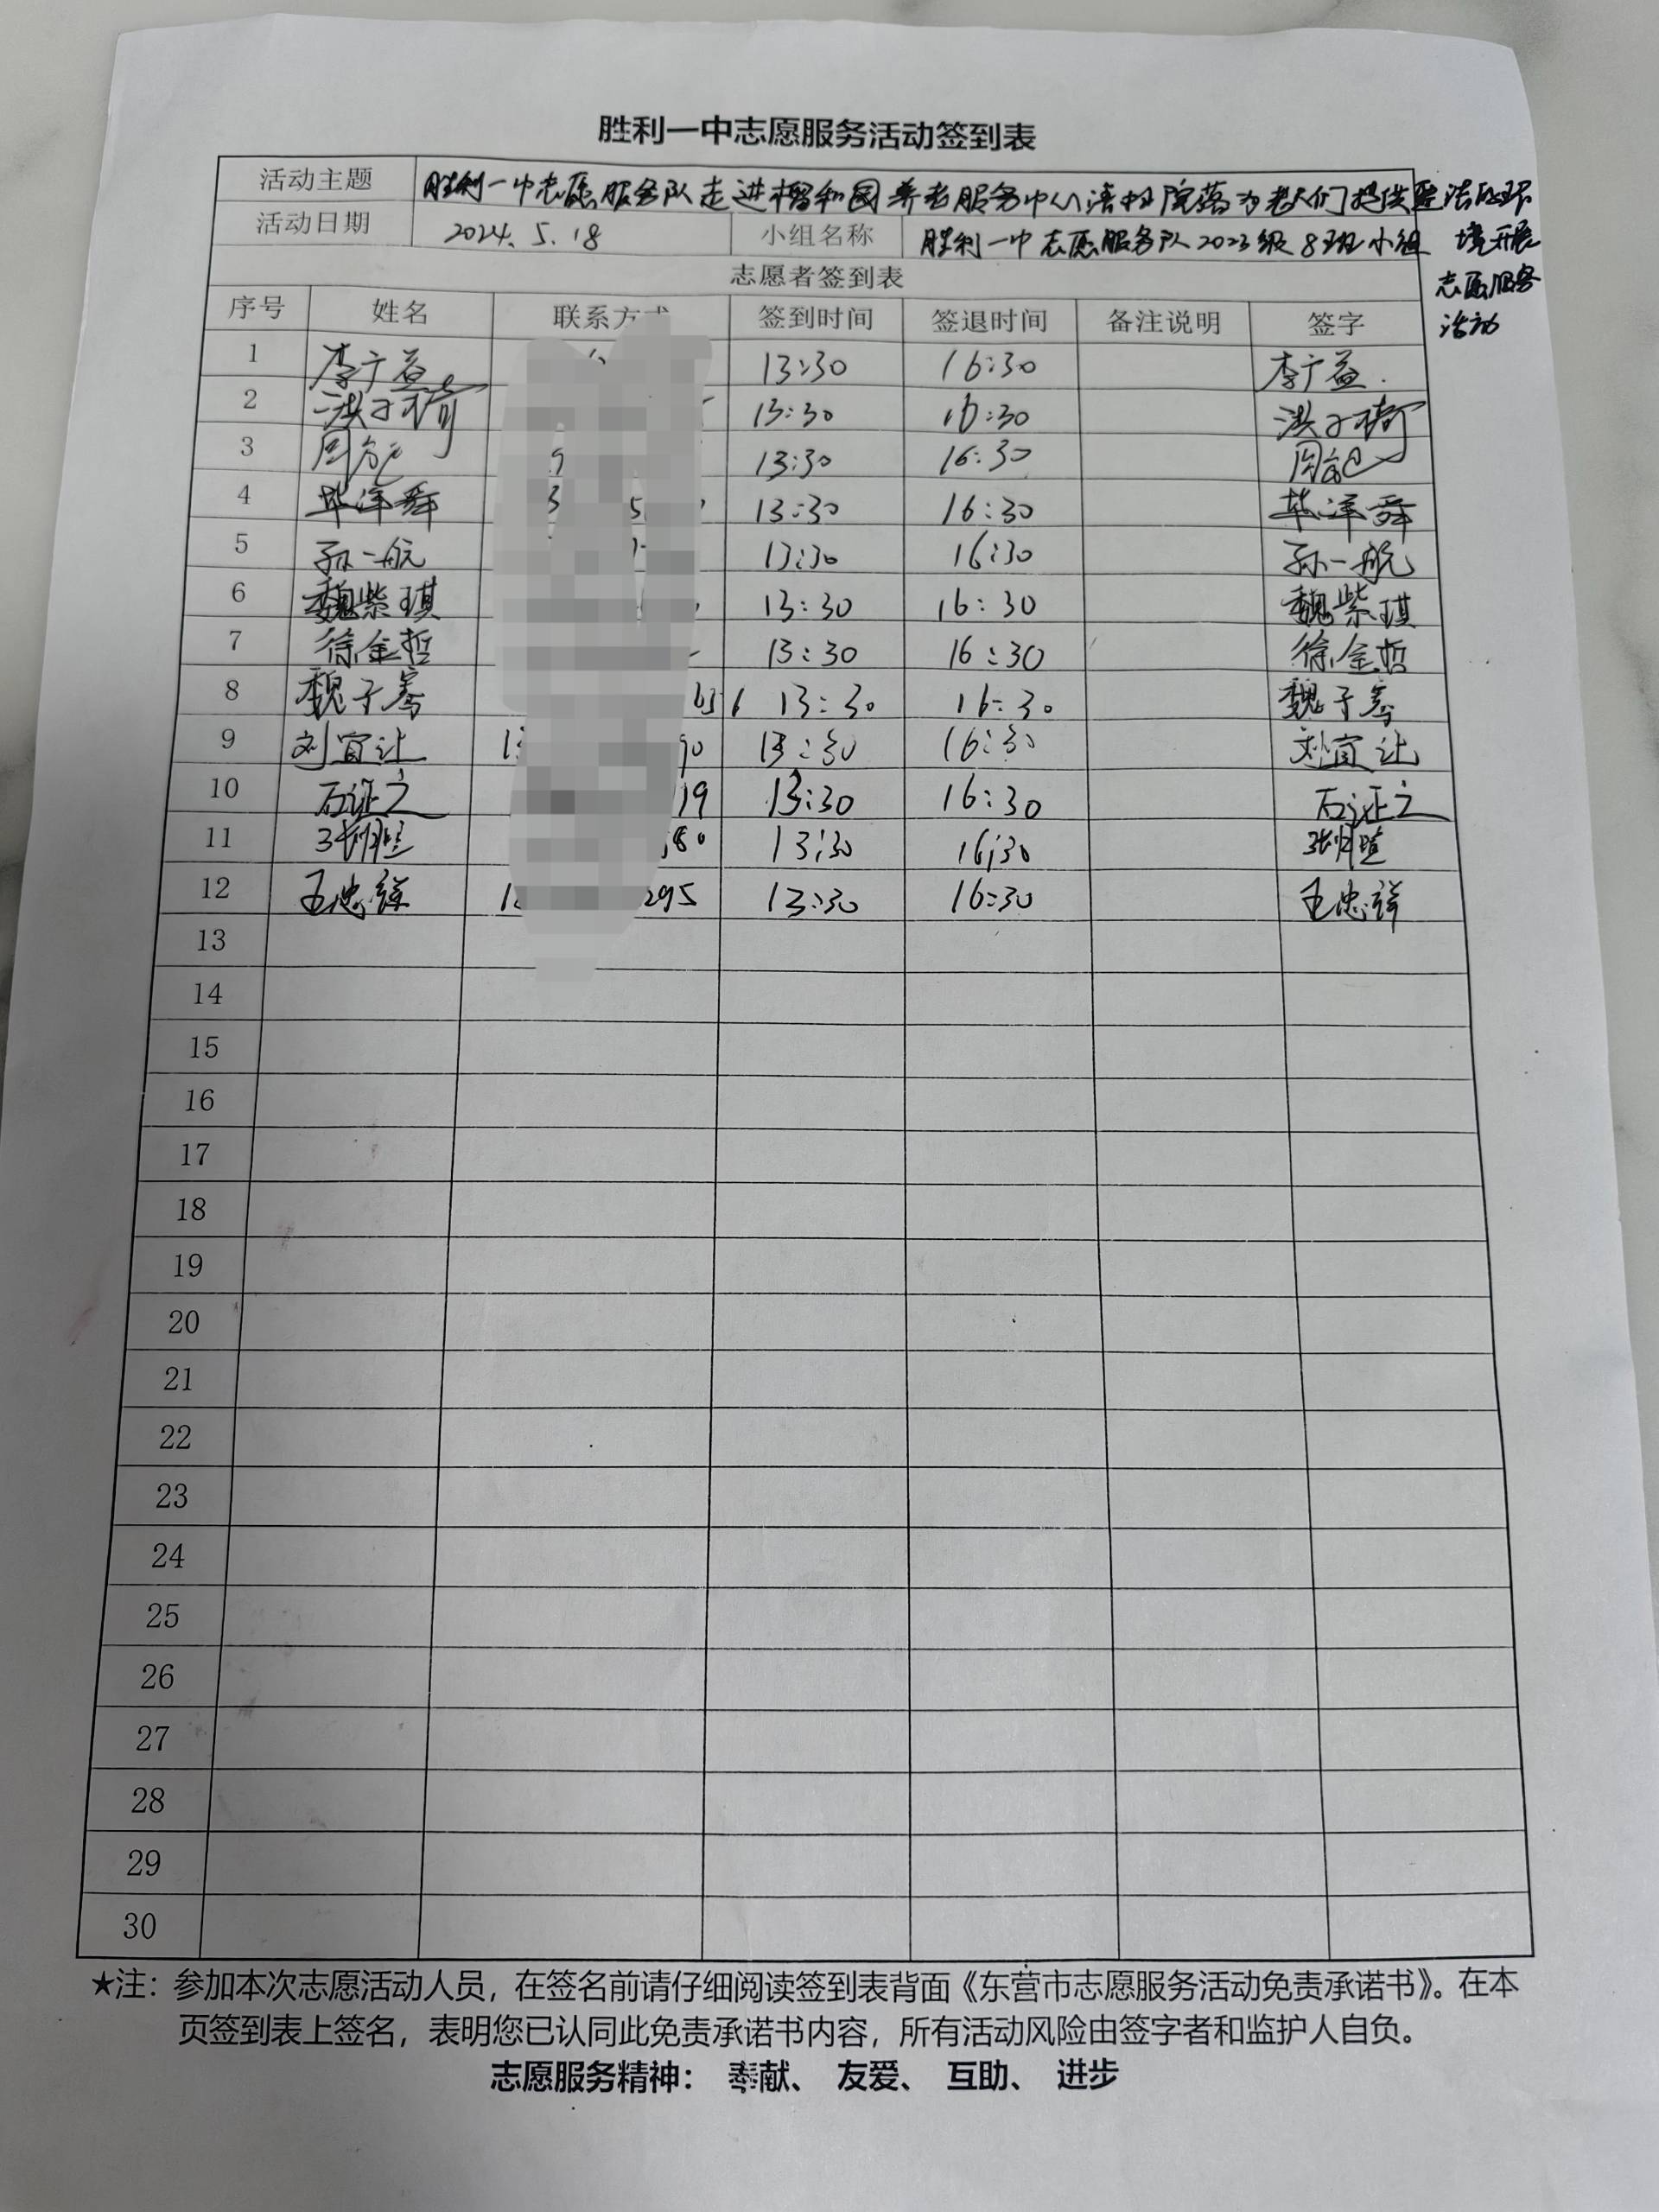 胜利一中志愿服务活动签到表
活动主题 胜利一中志愿服务队走进 和园养老服务中心清扫院落为老人们提供整洁的环境开展志愿服务活动
活动日期 2024.5.18 小组名称 胜利一中志愿服务队2023级8班小组
志愿者签到表
序号 姓名 联系方式 签到时间 签退时间 备注说明 签字
1 李广益 13:30 16:30 李广益
2 洪子椅 13:30 16:30 洪子椅
3 周 13:30 16:30 周
4 毕泽舜 13:30 16:30 毕泽舜
5 孙一航 13:30 16:30 孙一航
6 魏紫琪 13:30 16:30 魏紫琪
7 徐金哲 13:30 16:30 徐金哲
8 魏子骞 13:30 16:30 魏子骞
9 刘宜让 90 13:30 16:30 刘宜让
10 石证之 19 13:30 16:30 石证之
11 张 80 13:30 16:30 张
12 王忠祥 295 13:30 16:30 王忠祥
13
14
15
16
17
18
19
20
21
22
23
24
25
26
27
28
29
30
★注：参加本次志愿活动人员，在签名前请仔细阅读签到表背面《东营市志愿服务活动免责承诺书》。在本
页签到表上签名，表明您已认同此免责承诺书内容，所有活动风险由签字者和监护人自负。
志愿服务精神： 奉献、 友爱、 互助、 进步